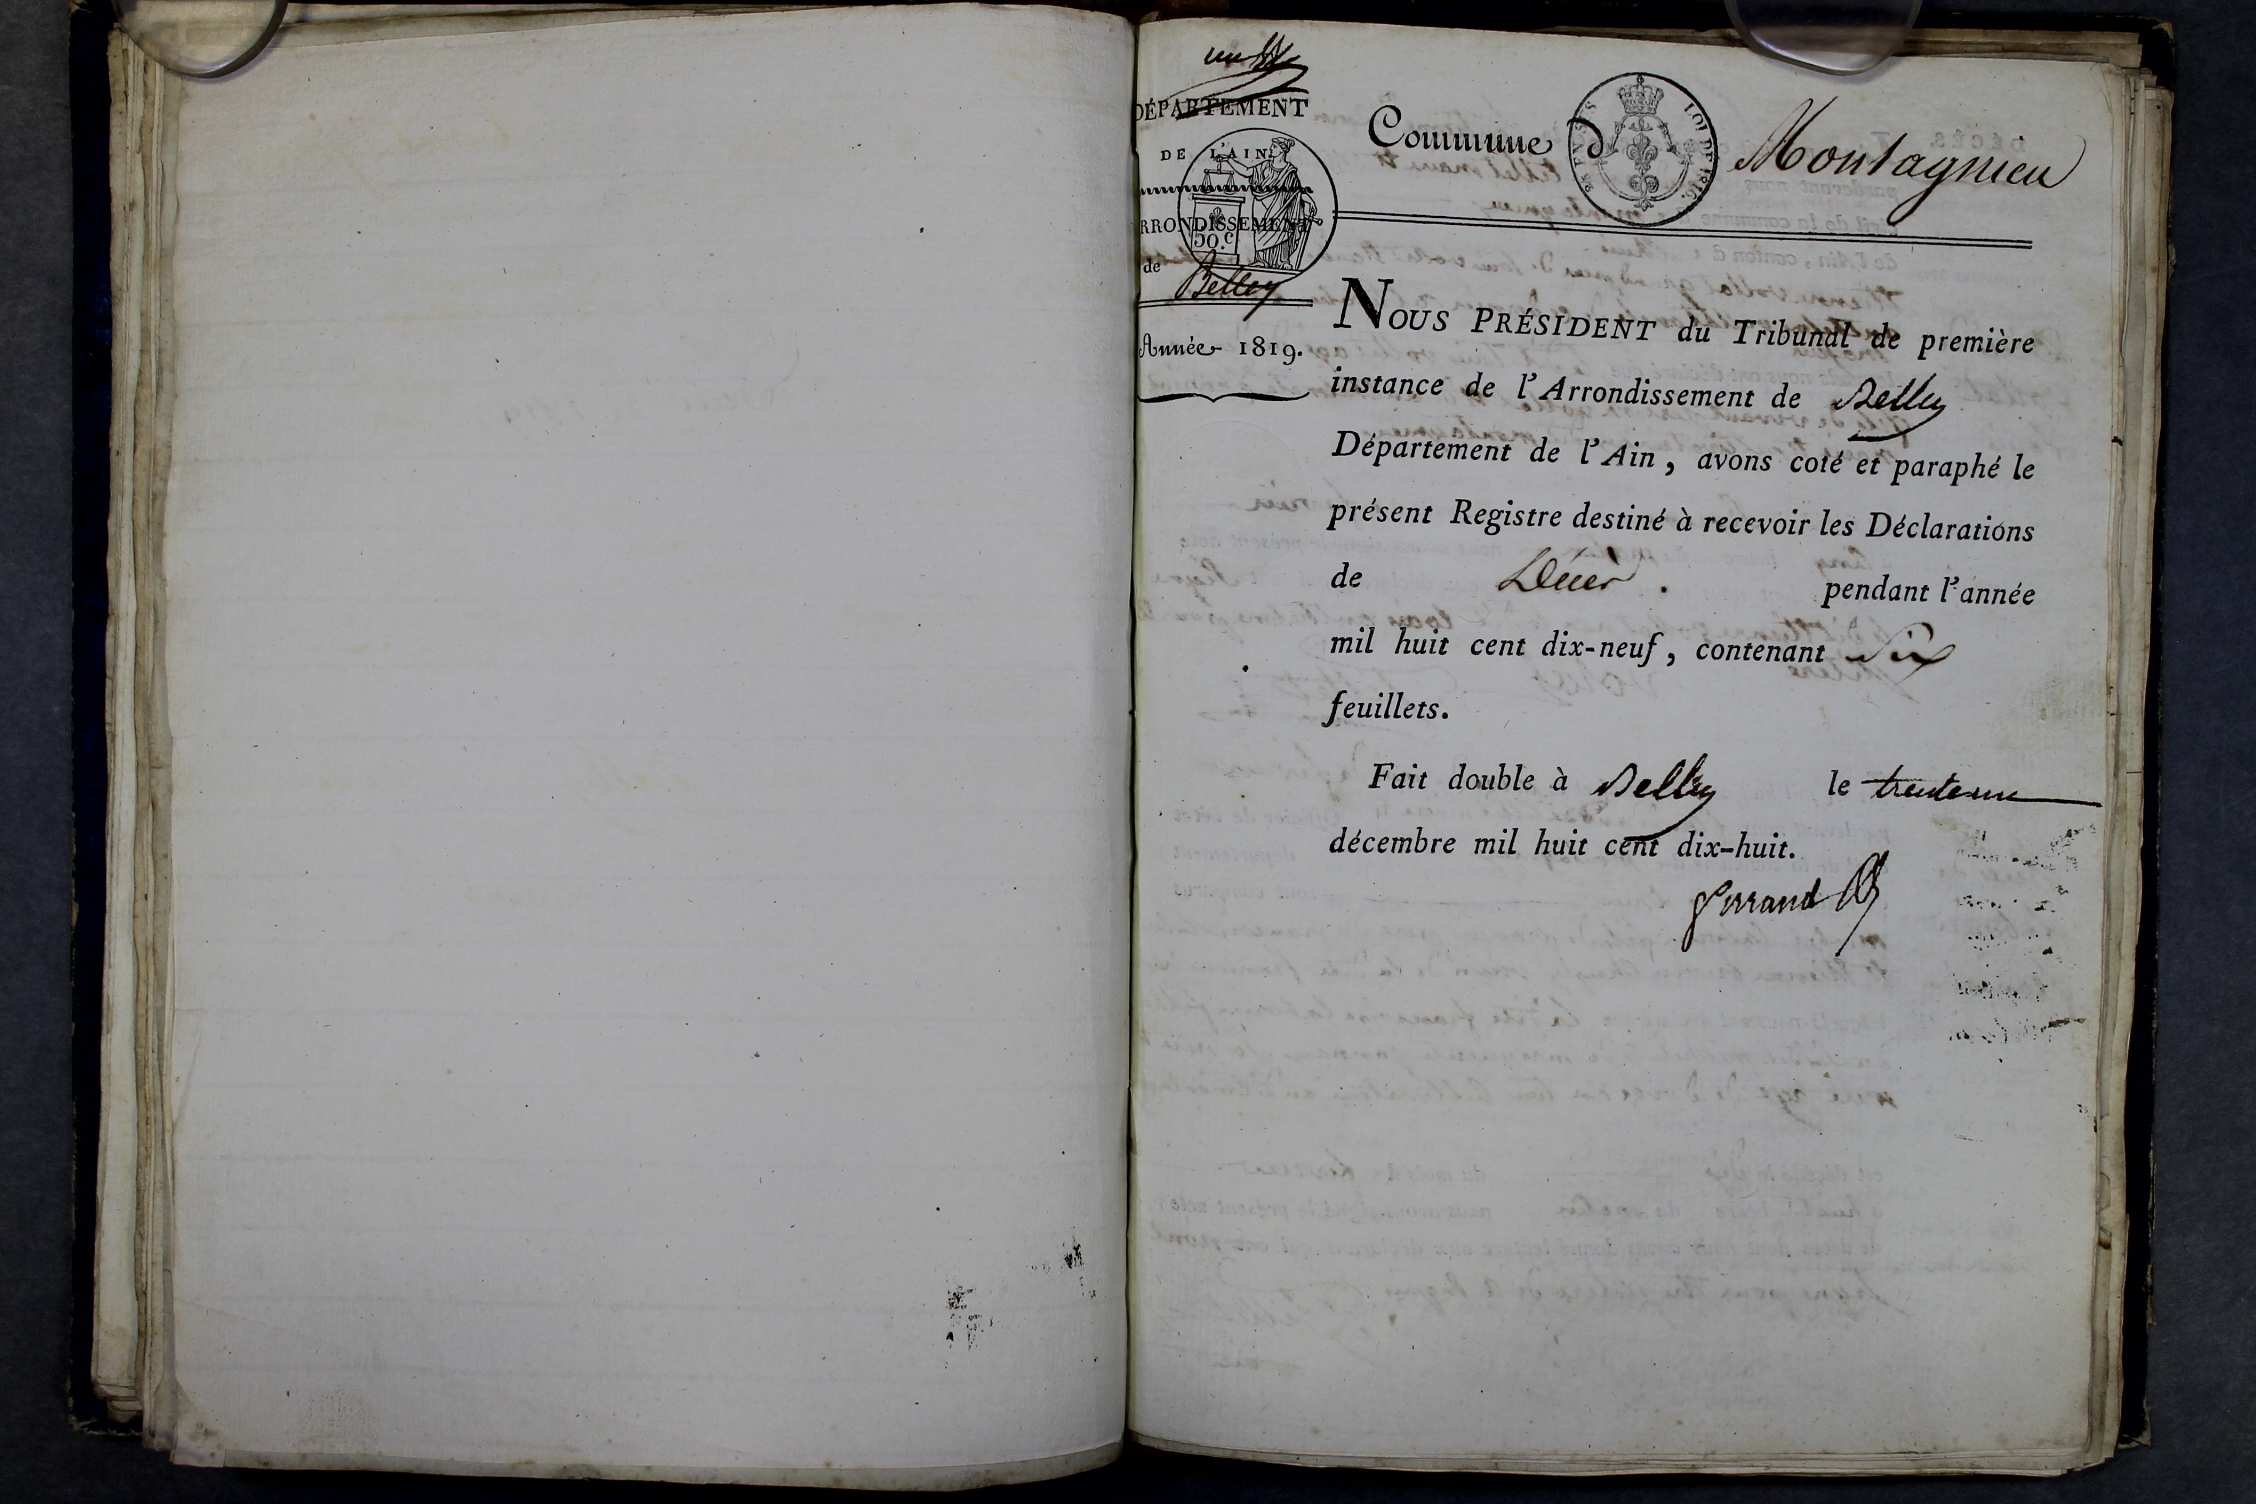 DÉPARTEMENT
DE L'AIN.
RRONDISSEMENT
50.c
de Belley
Année 1819.
Commune d Montagnieu
LOI DE 1816.
NOUS PRÉSIDENT du Tribunal de première
instance de l'Arrondissement de Belley
Département de l'Ain, avons coté et paraphé le
présent Registre destiné à recevoir les Déclarations
de Décès. pendant l'année
mil huit cent dix-neuf, contenant Six
feuillets.
Fait double à Belley le trente un
décembre mil huit cent dix-huit.